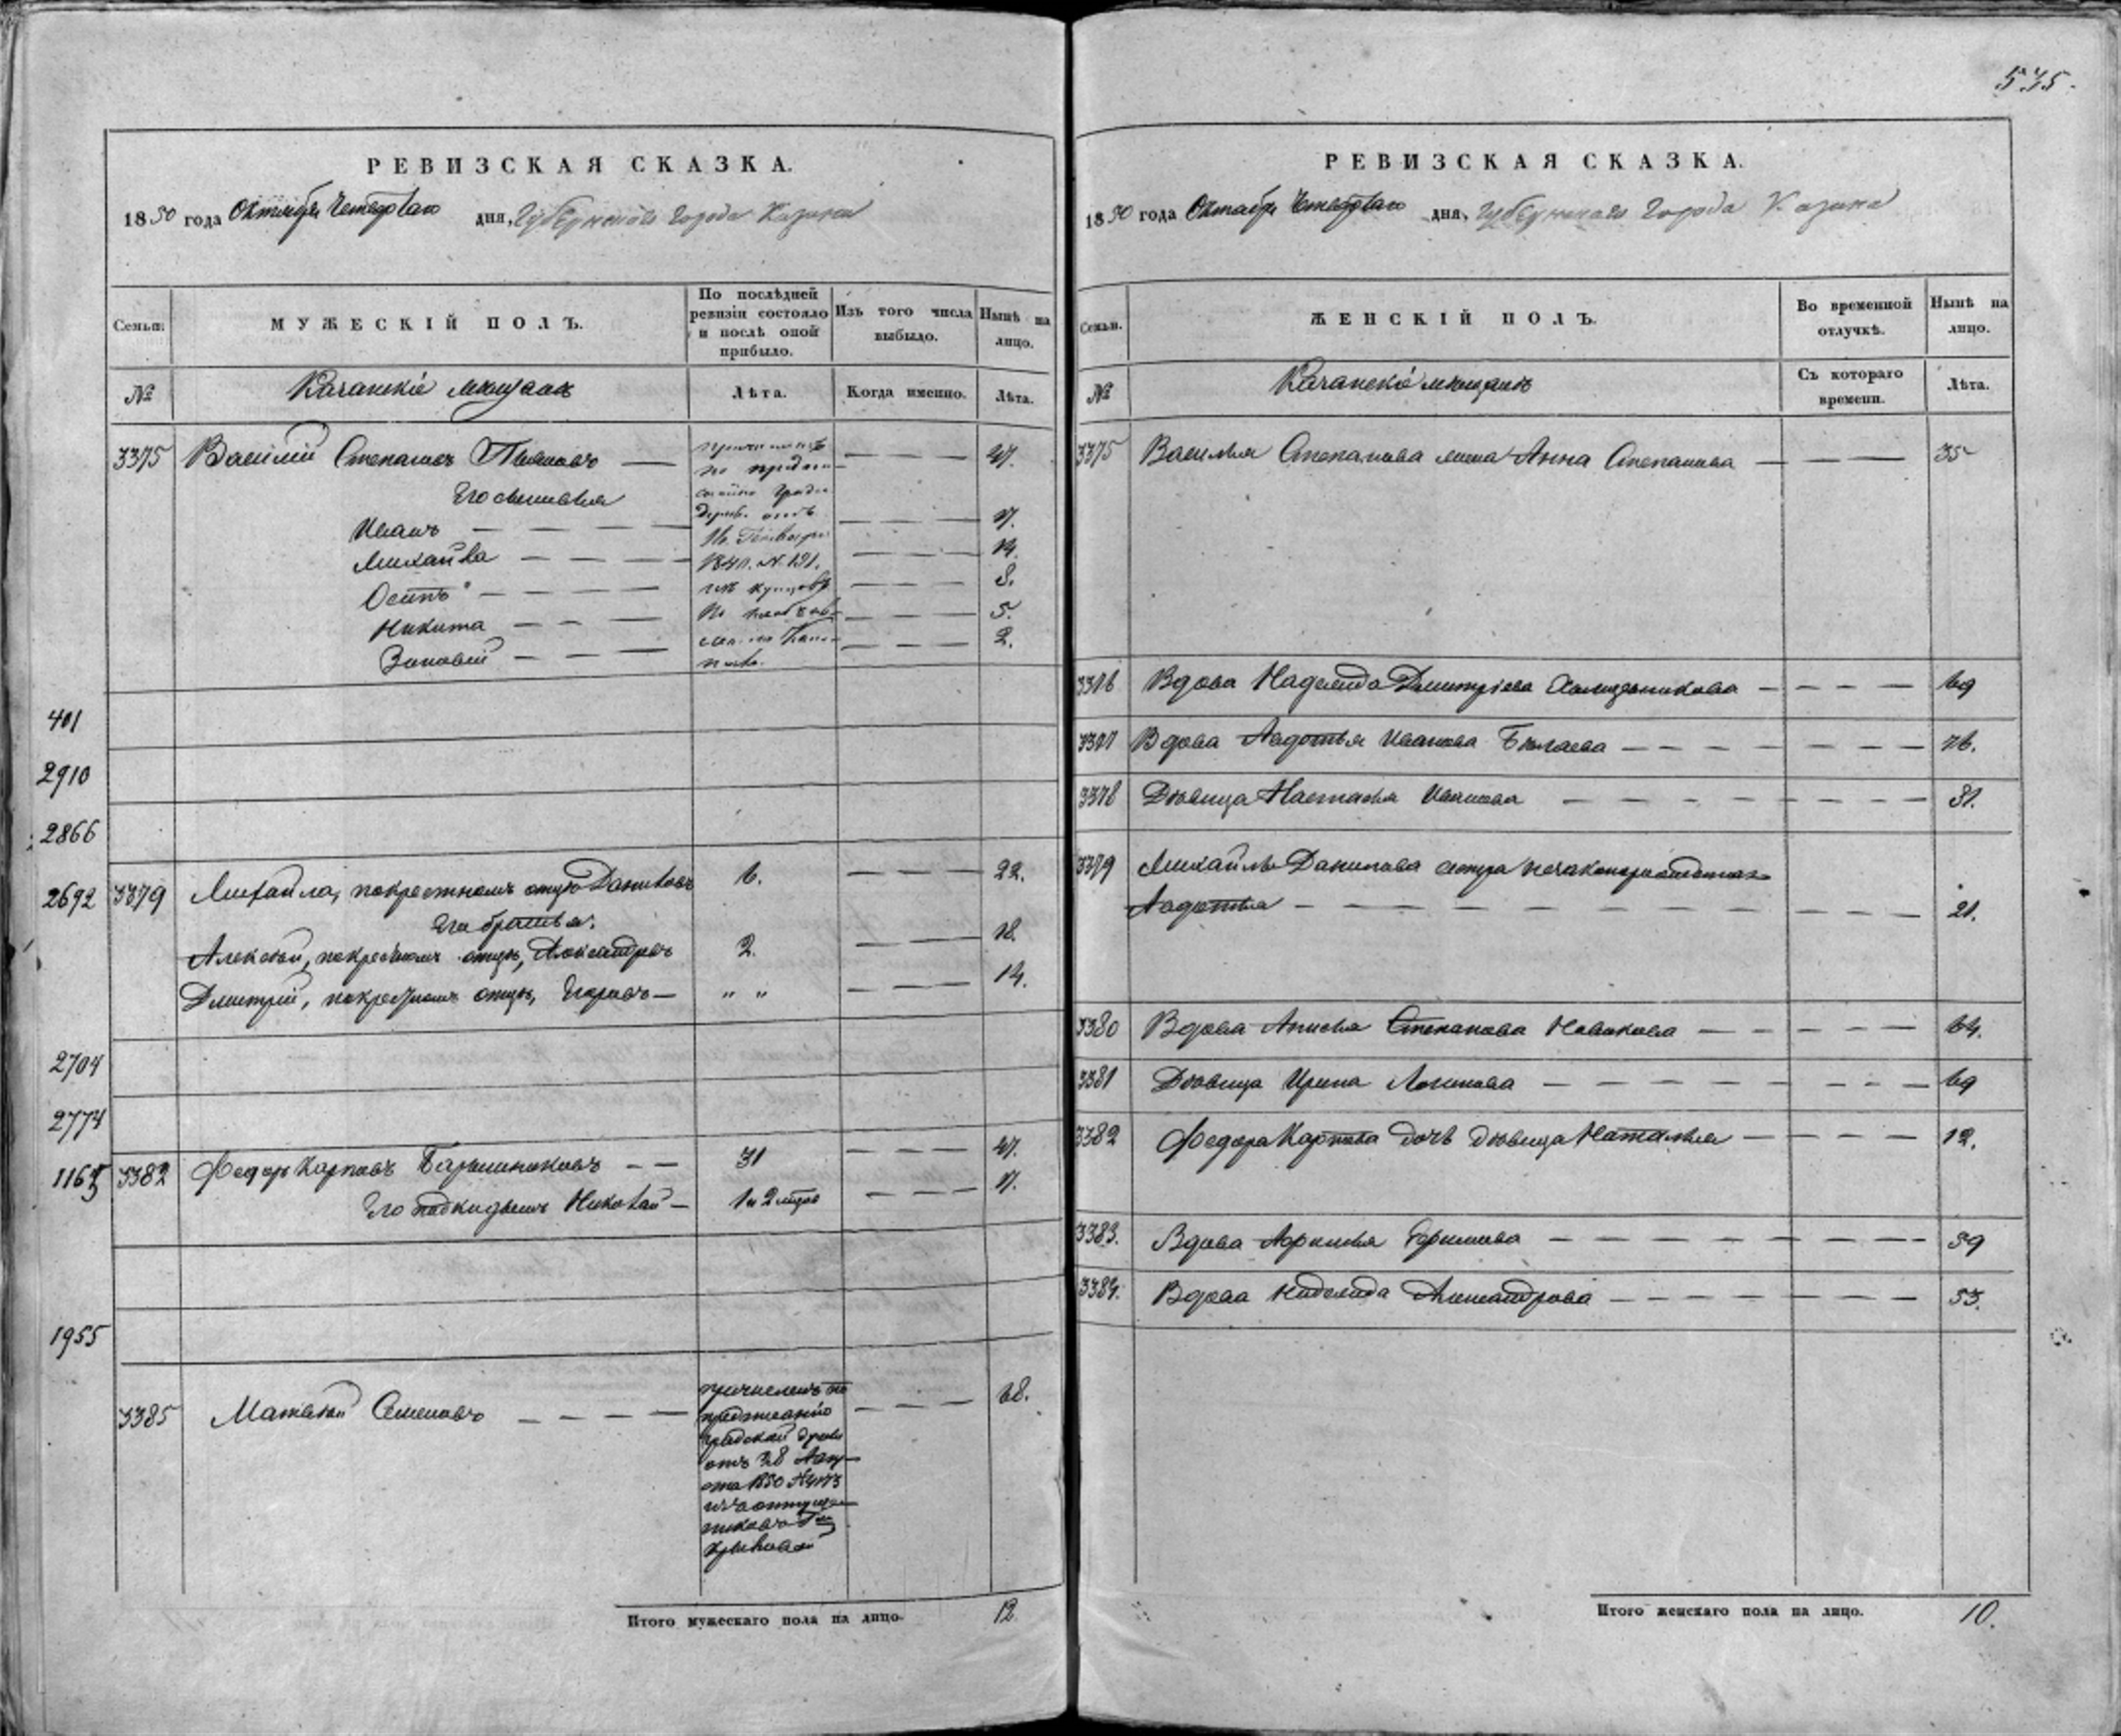 535.
РЕВИЗСКАЯ СКАЗКА.
1850 года Октября Четвертаго дня, Губернскаго Города Казани
Семьи.
МУЖЕСКІЙ ПОЛЪ.
По послѣдней ревизіи состояло и послѣ оной прибыло.
Изъ того числа выбыло.
Нынѣ на лицо.
№
Казанскіе мещане
Лѣта.
Когда именно.
Лѣта.
3375 Василій Степановъ — 47.
Его сыновья
Иванъ — — — 17.
Михайла — — — 14.
Осипъ — — — 8.
Никита — — — 5.
Зиновей — — — 2.
причисленъ
по предпи-
Градск.
Думы отъ
1840. N. 191.
изъ купцовъ
401
2910
2866
2692 3379 Михайла, по крестному отцу Даниловъ 6. — — — 22.
Его братья:
Алексѣй, по крестному отцу, Александровъ 2. — — — 18.
Дмитрій, по крестному отцу, Егоровъ — " " — — — 14.
2704
2774
1165 3382 Федоръ Карповъ — — 31 — — — 47.
Его подкидышъ Николай — 1 и 2 мцов — — — 17.
1955
3385 Матвѣй Семеновъ — — — — — — — 68.
причисленъ по
предписанію
градской думы
отъ 28 Авгу-
ста 1850
изъ отпущен-
никовъ
Итого мужескаго пола на лицо. 12.
РЕВИЗСКАЯ СКАЗКА.
1850 года Октября Четвертаго дня, Губернскаго Города Казани
Семьи.
ЖЕНСКІЙ ПОЛЪ.
Во временной отлучкѣ.
Нынѣ на лицо.
№
Казанскіе мещане
Съ котораго времени.
Лѣта.
3375 Василья Степанова жена Анна Степанова — — — 35
3376 Вдова Надежда Дмитріева — — — — 69
3377 Вдова Авдотья Иванова Бѣляева — — — — — — 76.
3378 Дѣвица Настасья Иванова — — — — — — — 31.
3379 Михайлы Данилова сестра незаконорожденная
Авдотья — — — — — — — — 21.
3380 Вдова Анисья Степанова Новикова — — — — — 64.
3381 Дѣвица Ирина Логинова — — — — — — — 69
3382 Федора Карпова дочь дѣвица Наталья — — — — — 12.
3383. Вдова Афимья Ефимова — — — — — — — 59
3384. Вдова Надежда Александрова — — — — — — 53.
Итого женскаго пола на лицо. 10.